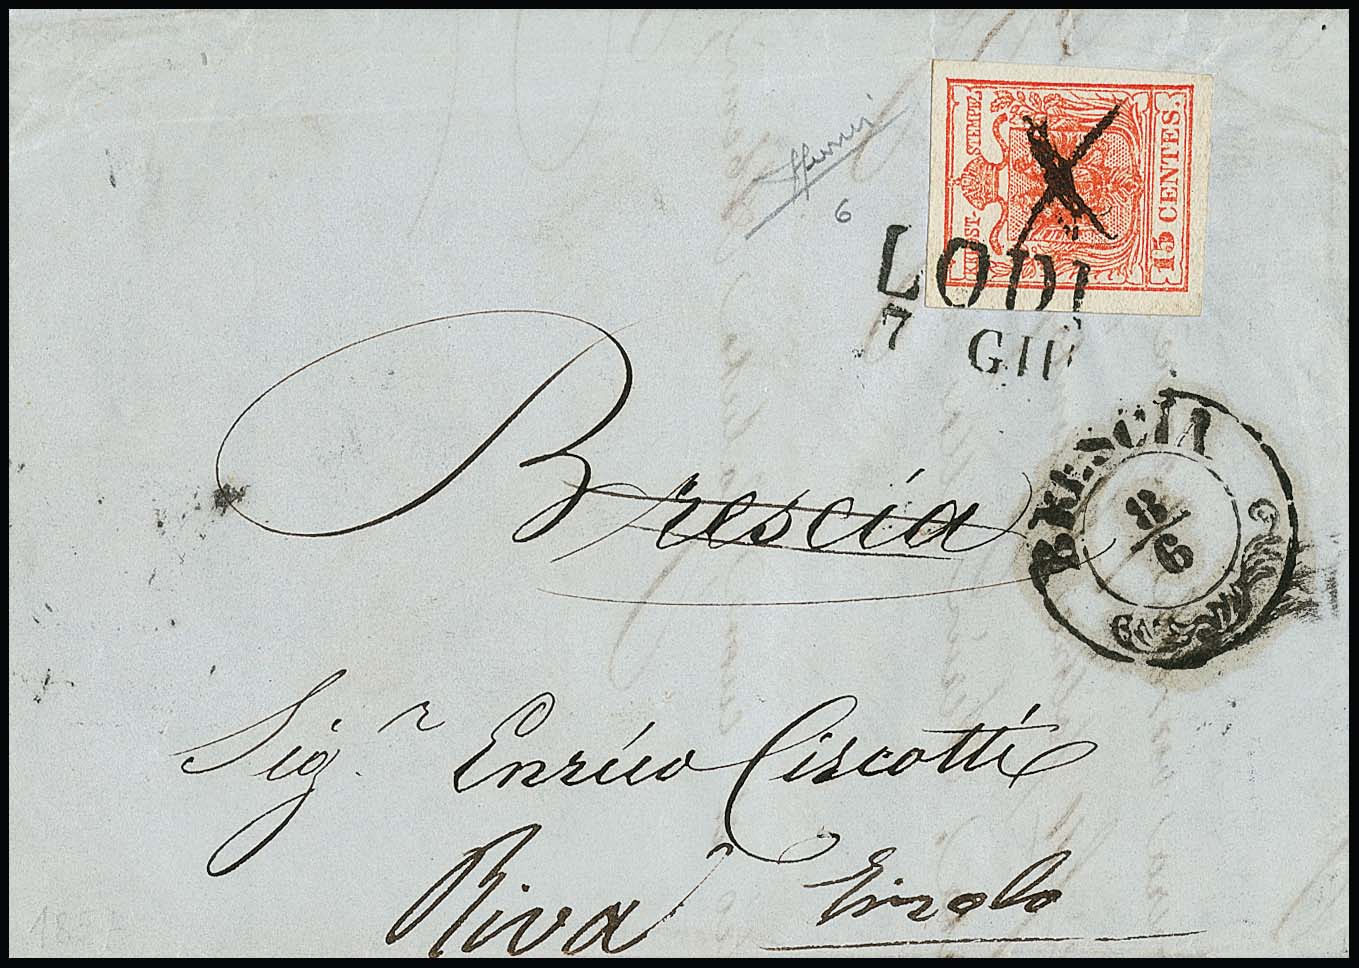 KK POST-STEMPEL
15 CENTES.
6
LODI
7 GIU
BRESCIA
8/6
Brescia
Sigr. Enrico Ciscotti
Riva Tirolo